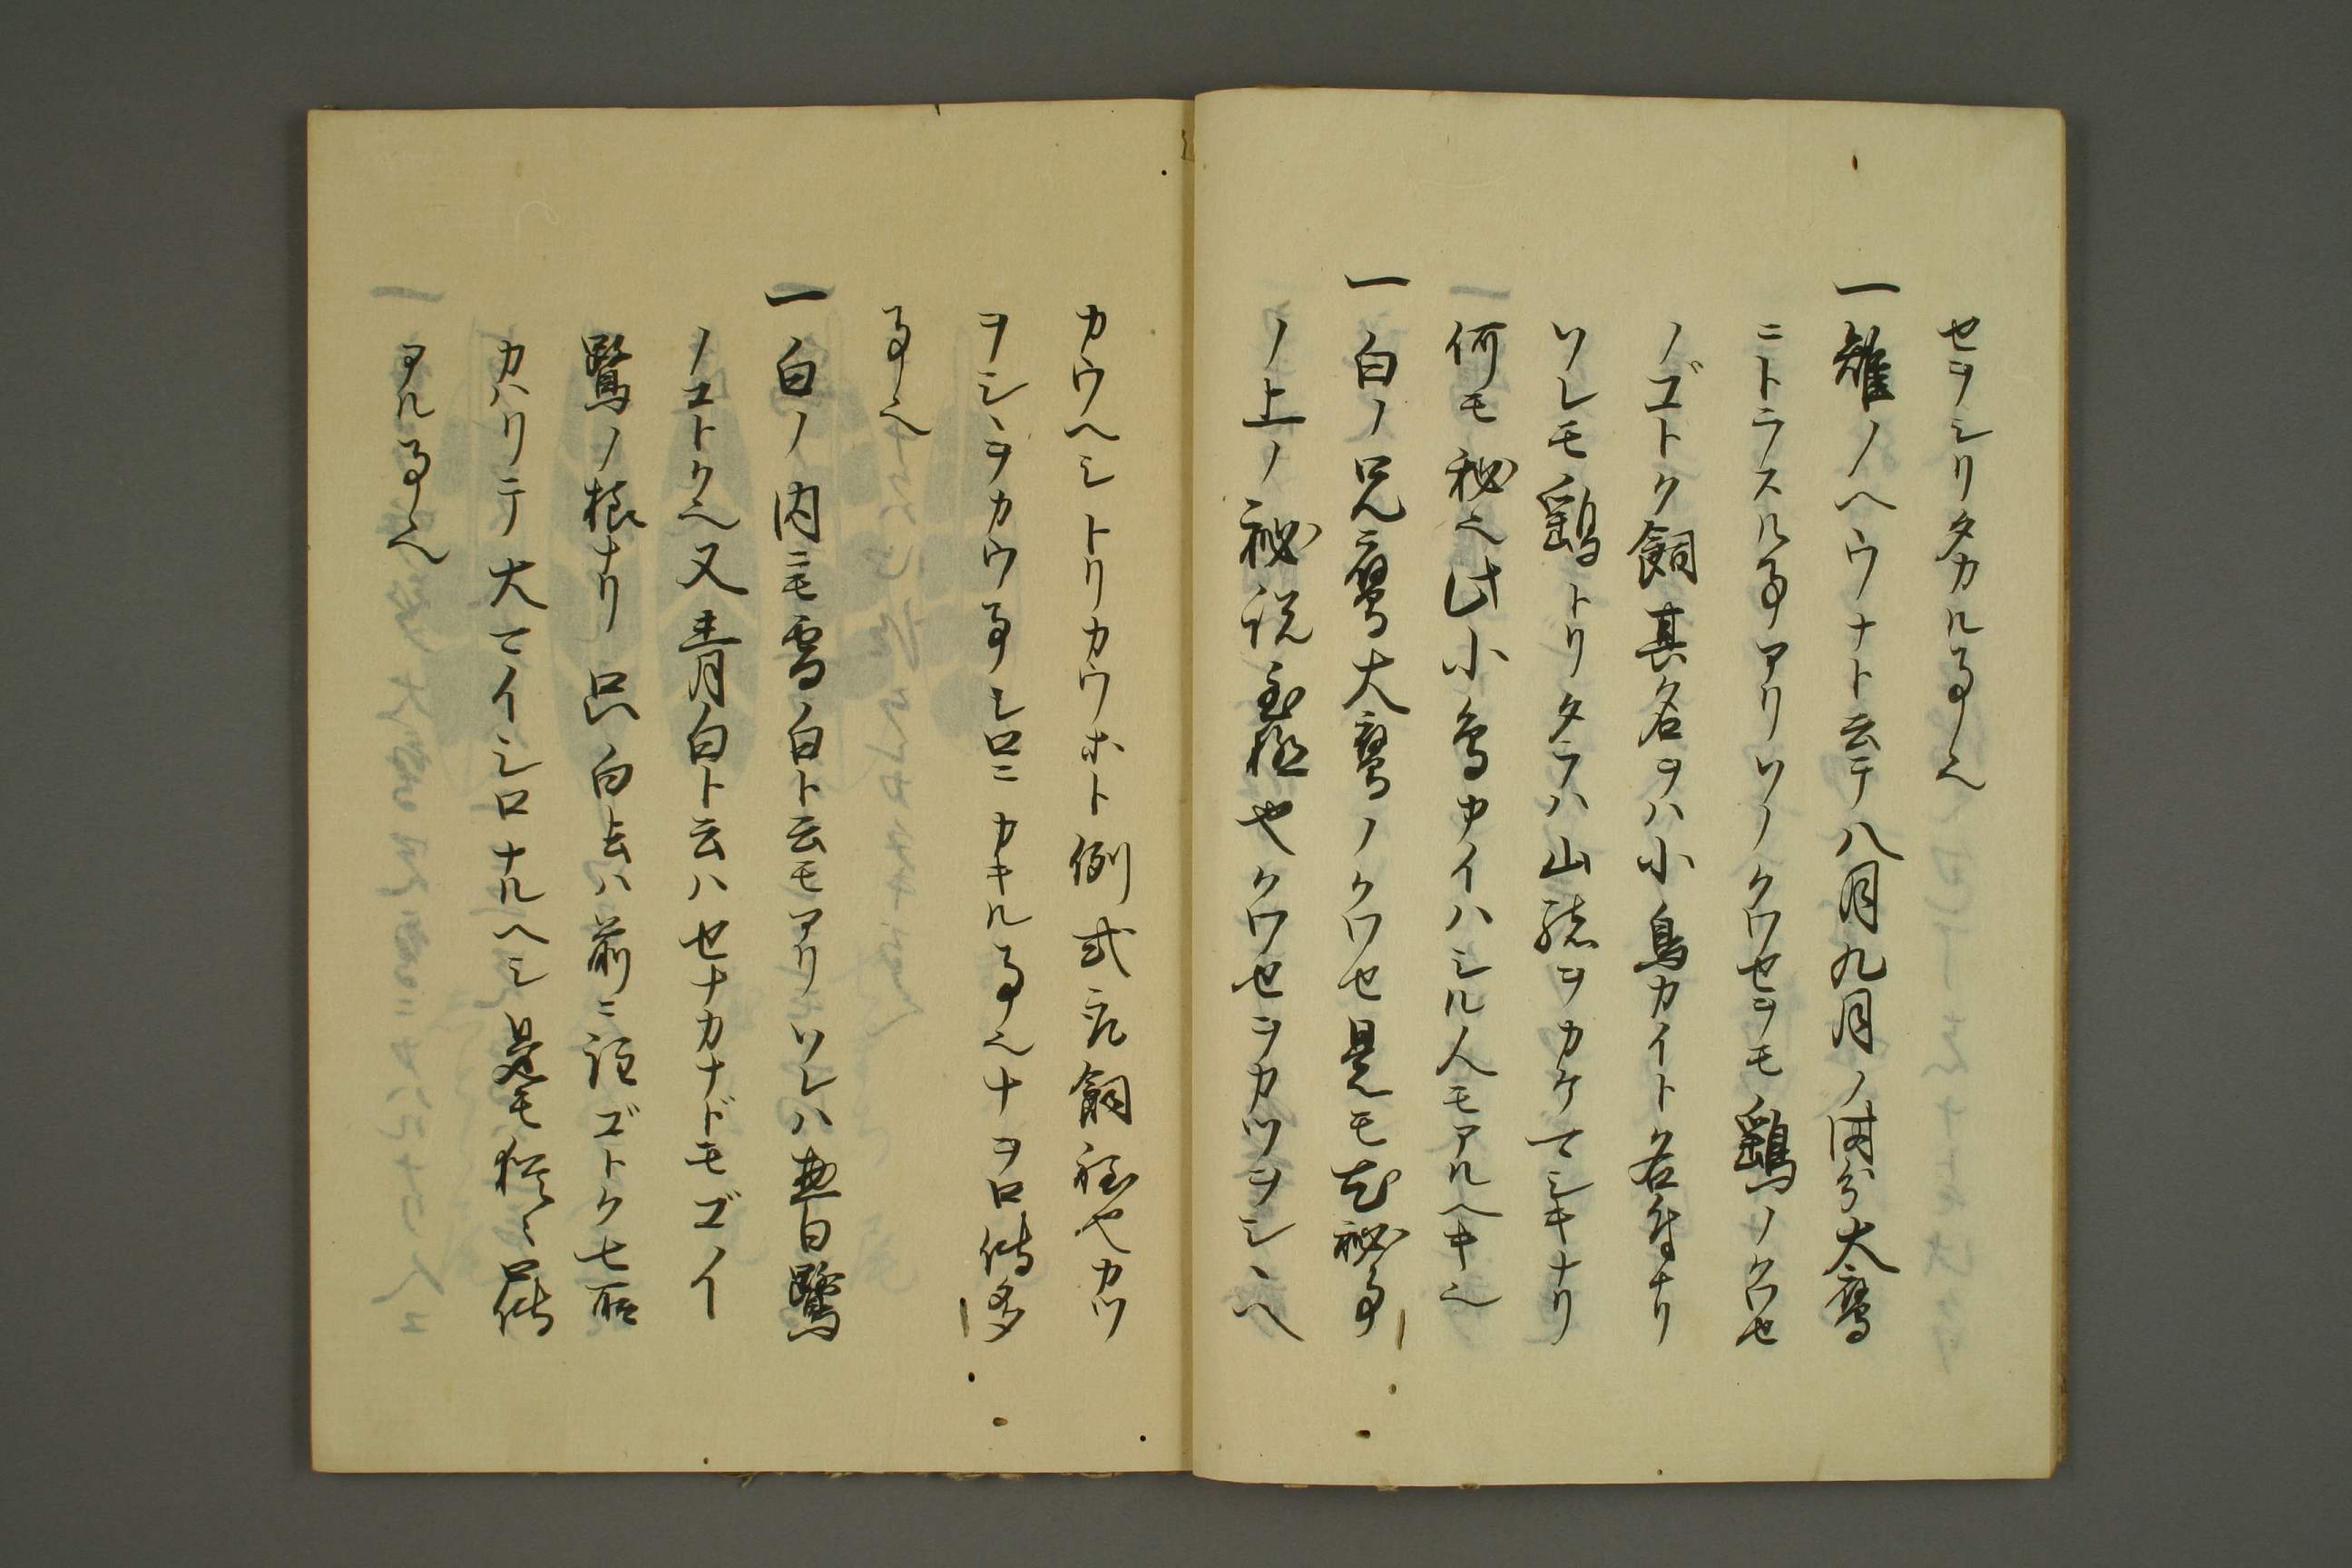 セヲシリタカルヿ也
一雉ノヘウナト云テ八月九月ノ時分大鷹
ニトラスルヿアリソノクワセヲモ鷂ノクワセ
ノゴトク飼其名ヲハ小鳥カイト名付ナリ
ソレモ鷂トリタラハ山緒ヲカケマシキナリ
何モ秘也此小鳥カイハシル人モアルヘキ也
一白ノ兄鷹大鷹ノクワセ是モ秘事
ノ上ノ秘説至極也クワセヲカツヲシヽヘ
カウヘシトリカウホト例式ノ飼程也カツ
ヲシヽヲカウ事シロニカキル事也ナヲ口傳多
事也
一白ノ内ニモ雪白ト云モアリソレハ白鷺
ノコトク也又青白ト云ハセナカナドモゴイ
鷺ノ様ナリ只白トハ前ニ注ゴトク七所
カハリテ大マイシロナルヘシ是モ種々口傳
アル事也